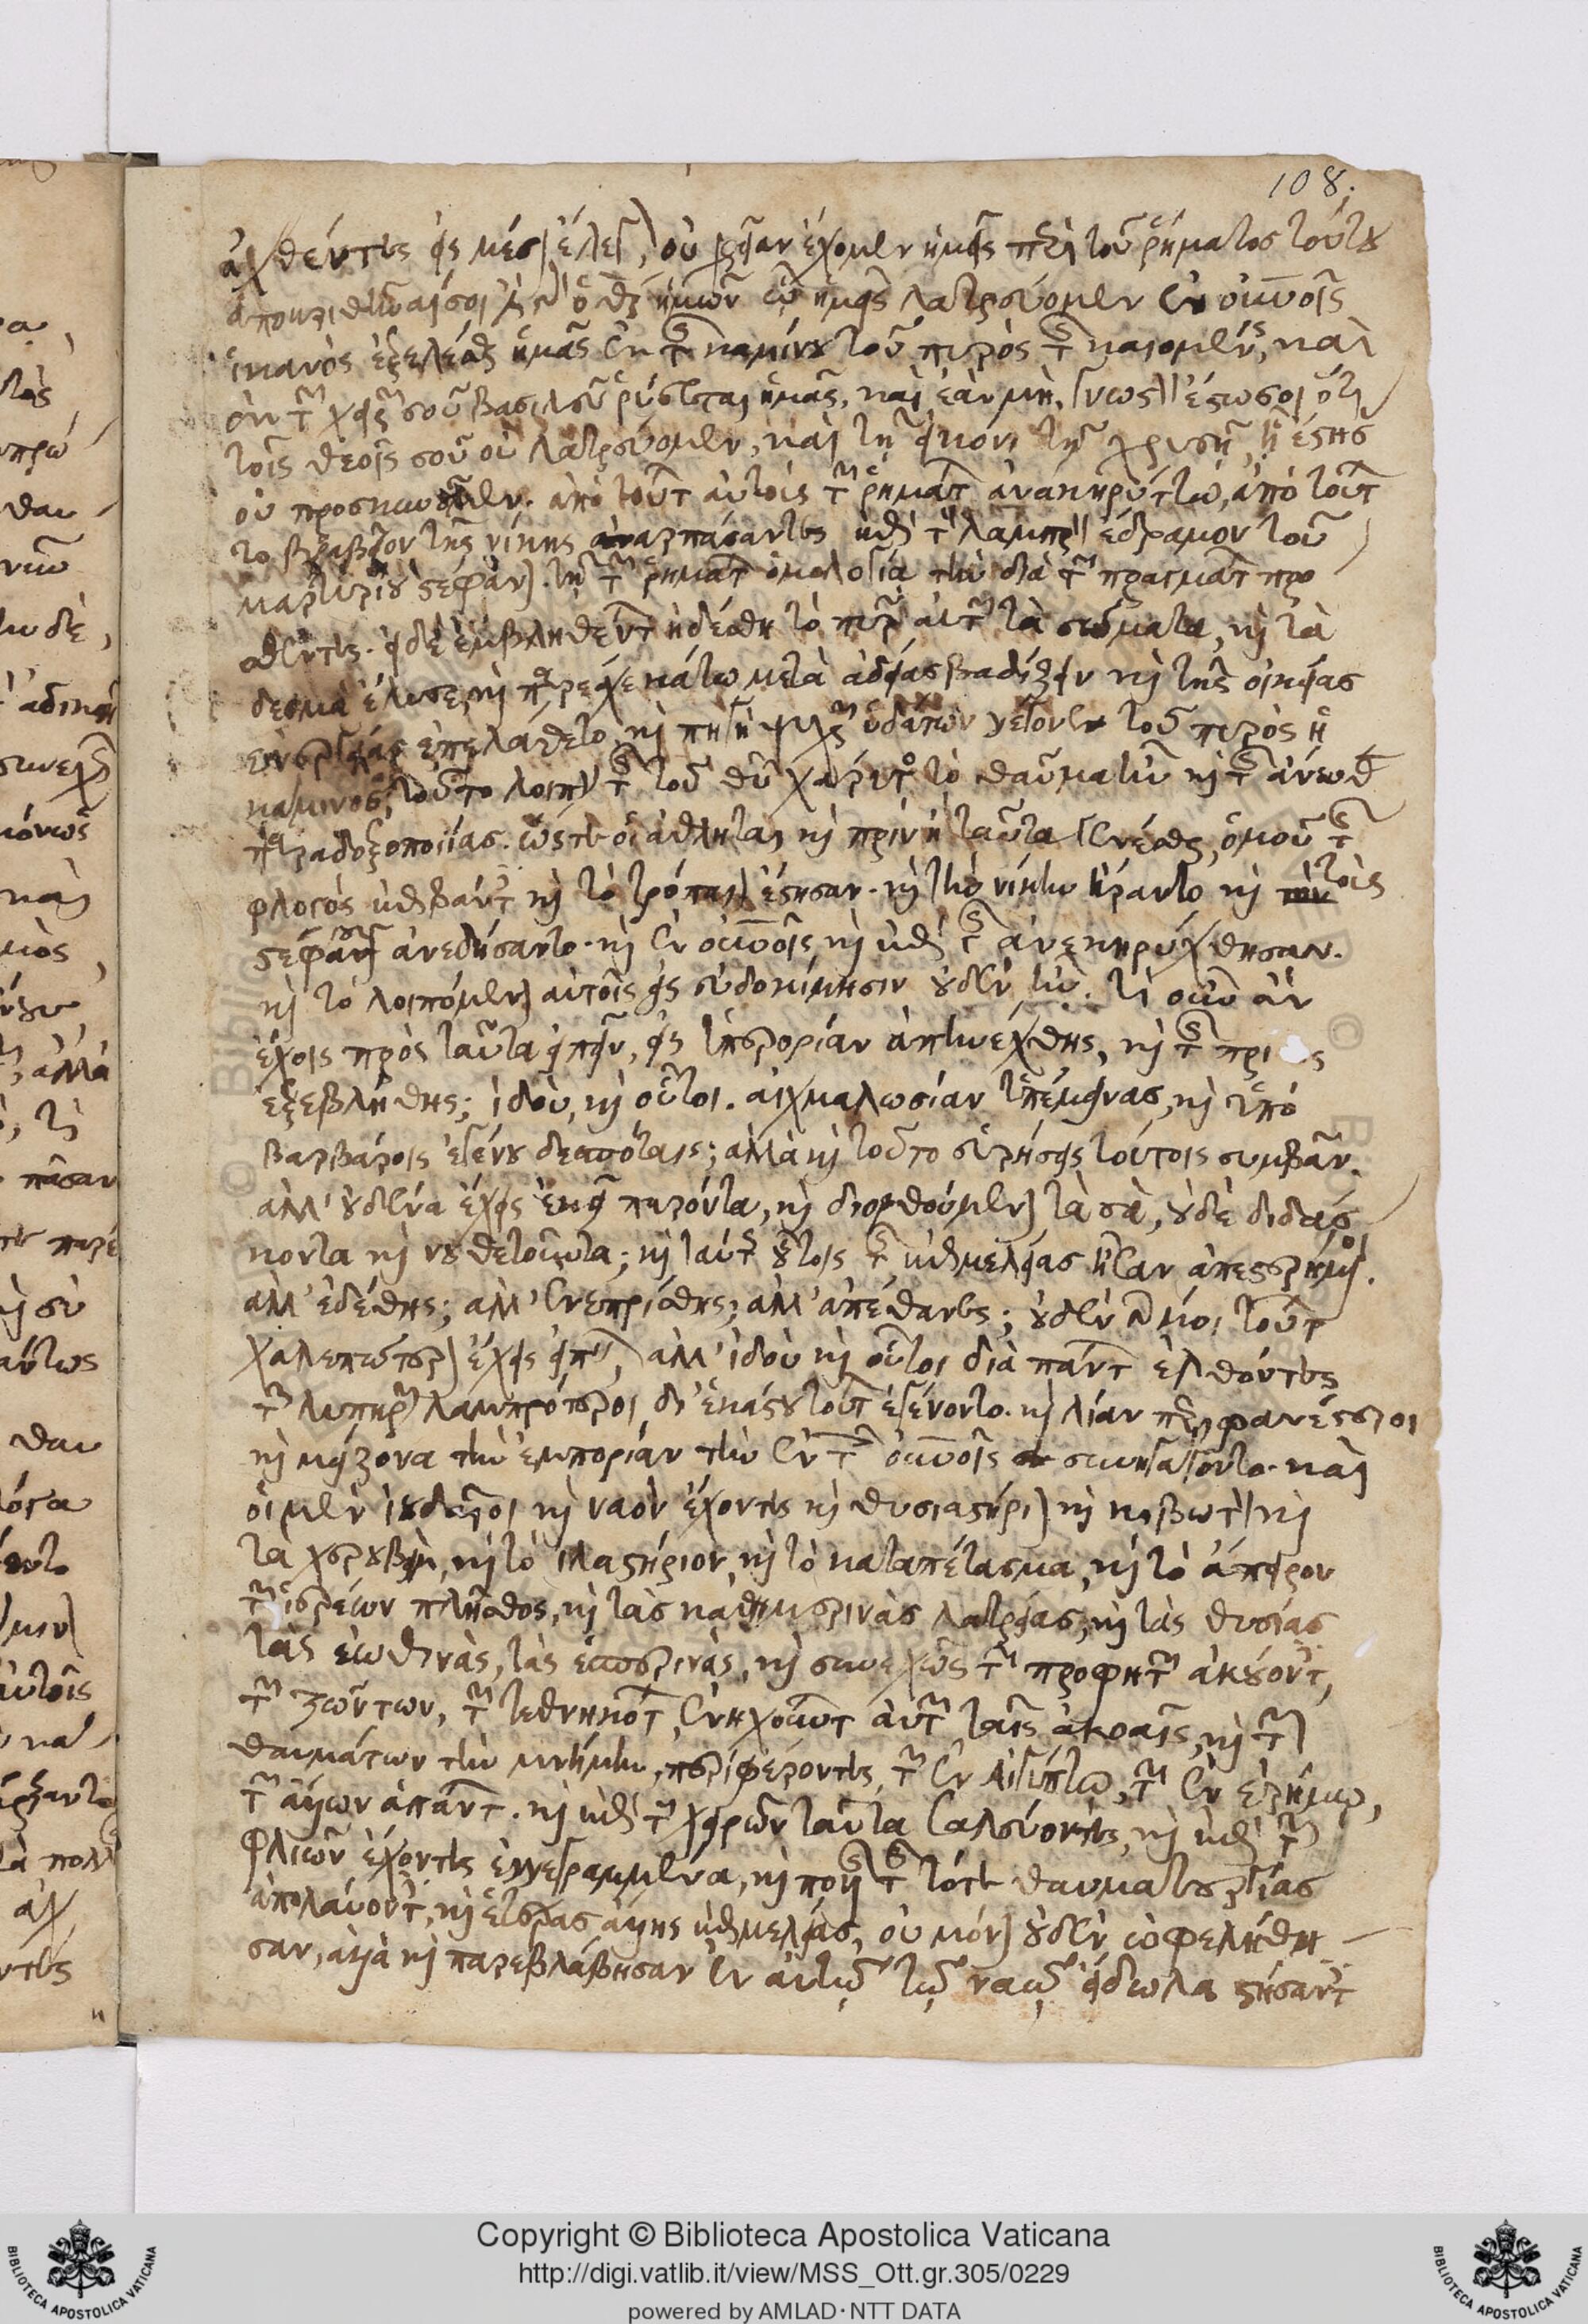 108.
ἀχθέντες εἰς μέσον ἔλεγον, οὐ χρείαν ἔχομεν ἡμεῖς περὶ τοῦ ῥήματος τούτου
ἀποκριθῆναί σοι ἔστι γὰρ ὁ θς ἡμῶν ὧ ἡμεῖς λατρεύομεν ἐν οὐνοῖς
ἱκανὸς ἐξελέσθαι ἡμᾶς ἐκ τῆς καμίνου τοῦ πυρὸς τῆς καιομένης, καὶ
ἐκ τῶν χειρῶν σοῦ βασιλεῦ ῥύσεται ἡμᾶς, καὶ ἐὰν μὴ, γνωστὸν ἔστω σοι ὅτι
τοῖς θεοῖς σοῦ οὐ λατρεύομεν, καὶ τῆ εἰκόνι τῆ χρυσῆ, ἧ ἔστησ
οὐ προσκυνοῦμεν. ἀπὸ τούτων αὐτοὺς τῶν ῥημάτων ἀνακηρύττω, ἀπὸ τούτων
τὸ βραβεῖον τῆς νίκης ἁρπάσαντες καὶ τὸν λαμπρὸν ἔδραμον τοῦ
μαρτυρίου στέφανον. τῆ τῶν ῥημάτων ὁμολογία τὴν διὰ τῶν πραγμάτων προ
σθέντες. εἰ δὲ ἐμβληθέντων ἠδέσθη τὸ πῦρ αὐτῶν τὰ σώματα, καὶ τὰ
δεσμὰ ἔλυσε, καὶ παρεῖχε κάτω μετὰ ἀδείας βαδίζειν καὶ τῆς οἰκείας
ἐνεργείας ἐπελάθετο, καὶ πηγὴ ψυχρῶν ὑδάτων γέγονεν τοῦ πυρὸς ἡ
κάμινος, τοῦτο λοιπὸν τῆς τοῦ θυ χάριτος τὸ θαῦμα ἦν καὶ τῆς ἄνωθεν
παραδοξοποιίας. ὥστε οἱ ἀθληταὶ καὶ πρὶν ἢ ταῦτα γενέσθαι, ὁμοῦ τῆς
φλογός ἐπιβάντες καὶ τὸ τρόπαιον ἔστησαν. καὶ τὴν νίκην ἤραντο καὶ τοῖς
στέφανον ἀνεδήσαντο. καὶ ἐν οὐνοῖς καὶ ἐπὶ γῆς ἀνεκηρύχθησαν.
καὶ τὸ λοιπόμενον αὐτοῖς εἰς εὐδοκίμησιν οὐδὲν ἦν. τί οὖν ἂν
ἔχοις πρὸς ταῦτα εἰπεῖν, εἰς ὑπερορίαν ἀπηνέχθης, καὶ τῆς
ἐξεβλήθης; ἰδοὺ, καὶ οὗτοι. αἰχμαλωσίαν ὑπέμεινας, καὶ ὑπὸ
βαρβάροις ἐγένου δεσπόταις; ἀλλὰ καὶ τοῦτο εὑρήσεις τούτοις συμβάν.
ἀλλ' οὐδένα ἔχεις ἐκεῖ παρόντα, καὶ διορθούμενον τὰ σὰ, οὐδὲ διδάσ
κοντα καὶ νουθετοῦντα; καὶ ταύτης οὗτοι τῆς ἐπιμελείας ἦσαν ἀπεστερημένοι.
ἀλλ' ἐδέθης; ἀλλ' ἐνεπρίσθης; ἀλλ' ἀπέθανες; οὐδὲν γάρ μοι τούτων
χαλεπώτερον ἔχεις εἰπεῖν, ἀλλ' ἰδοὺ καὶ οὗτοι διὰ πάντων ἐλθόντες
τῶν λυπηρῶν λαμπρότεροι δι' ἑκάστου τούτων ἐγένοντο. καὶ λίαν περιφανέστεροι
καὶ μείζονα τὴν ἐμπορίαν τὴν ἐν τοῖς οὐνοῖς συνήγαγον. καὶ
οἱ μὲν ἰουδαῖοι καὶ ναὸν ἔχοντες καὶ θυσιαστήριον καὶ κιβωτὸν καὶ
τὰ χερουβὶμ, καὶ τὸ ἱλαστήριον, καὶ τὸ καταπέτασμα, καὶ τὸ ἄπειρον
τῶν ἱερέων πλῆθος, καὶ τὰς καθημερινὰς λατρείας, καὶ τὰς θυσίας
τὰς ἑωθινὰς, τὰς ἑσπερινὰς, καὶ συνεχῶς τῶν προφητῶν ἀκούοντες,
τῶν ζώντων, τῶν τεθνηκότων, ἐνηχούντων αὐτῶν ταῖς ἀκοαῖς, καὶ τῶν
θαυμάτων τὴν μνήμην περιφέροντες, τῶν ἐν Αἰγύπτω, τῶν ἐν ἐρήμω,
τῶν ἄλλων ἁπάντων. καὶ ἐπὶ τῶν χειρῶν ταῦτα, καὶ ἐπὶ τῶν
φλιῶν ἔχοντες ἐγγεγραμμένα, καὶ πολλῆς τῆς τότε θαυματουργίας
ἀπολαύοντες, καὶ ἑτέρας ἄλλης ἐπιμελείας, οὐ μόνον οὐδὲν ὠφελήθη
σαν, ἀλλὰ καὶ παρεβλάβησαν ἐν αὐτῶ τῶ ναῶ εἴδωλα στήσαντες
Copyright © Biblioteca Apostolica Vaticana
http://digi.vatlib.it/view/MSS_Ott.gr.305/0229
powered by AMLAD·NTT DATA
BIBLIOTECA APOSTOLICA VATICANA
BIBLIOTECA APOSTOLICA VATICANA